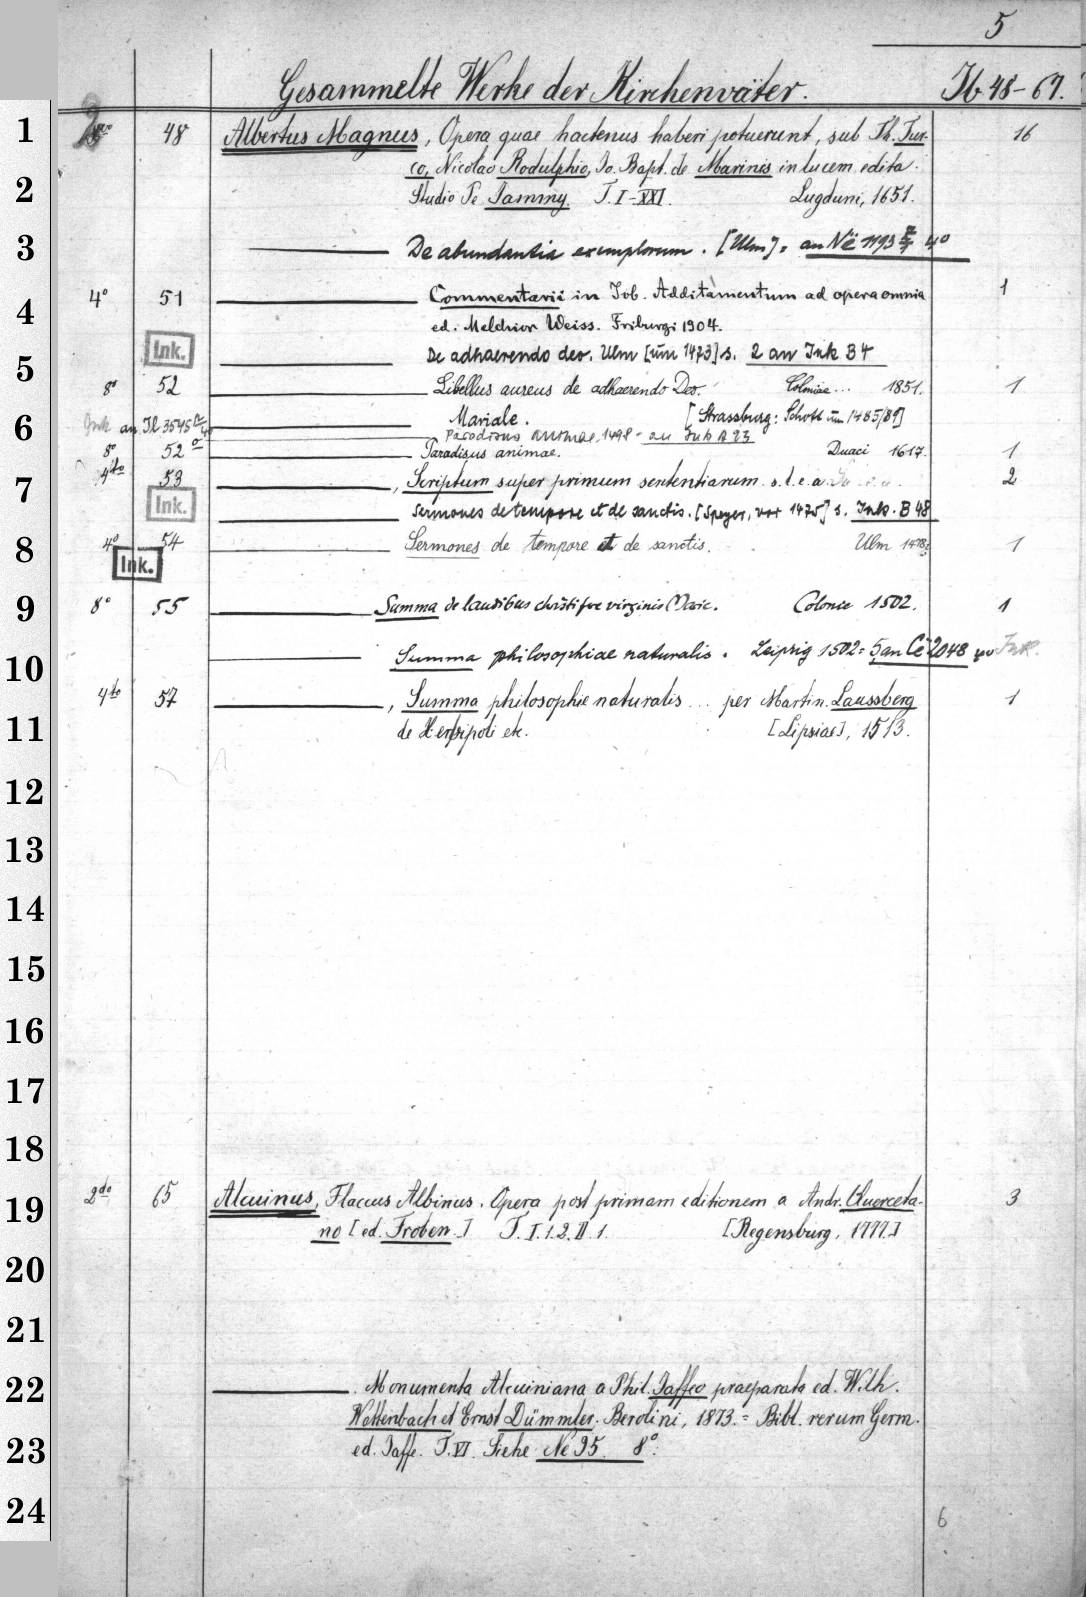 5
Gesammelte Werke der Kirchenväter. Ib 48-67.
1 48 Albertus Magnus, Opera quae hactenus haberi potuerunt, sub Th. Tur- 16
co, Nicolao Rodulphio, Io. Bapt. de Marinis in lucem edita
2 Studio Pe Jammy. T. I-XXI. Lugduni, 1651.
3 De abundantia exemplorum. [Ulm] = an 4°
4° 51 Commentarii in Iob. Additamentum ad opera omnia 1
4 ed. Melchior Weiss. Friburgi 1904.
5 Ink. De adhaerendo deo. Ulm [um 1473] s. 2 an Ink B 4
8° 52 Libellus aureus de adhaerendo Deo. Coloniae... 1851. 1
6 Ink an Il 3545 Mariale. [Strassburg: Schott um 1485/87]
Paradisus animae, 1498 - an Ink A 23
8° 52 a Paradisus animae. Duaci 1617. 1
7 4to 53 , Scriptum super primum sententiarum. s. l. e. a. 2
Ink. Sermones de tempore et de sanctis. [Speyer, vor 1475] s. Ink. B 48
8 4° 54 Sermones de tempore et de sanctis. Ulm 1
Ink.
9 8° 55 Summa de laudibus christifere virginis Marie. Colonie 1502. 1
10 Summa philosophiae naturalis. Leipzig 1502 = 5 an Cë 2048 Ink.
4to 57 , Summa philosophie naturalis... per Martin. Laussberg 1
11 de Herbipoli etc. [Lipsiae], 1513.
12
13
14
15
16
17
18
19 2do 65 Alcuinus, Flaccus Albinus. Opera post primam editionem a Andr. Querceta- 3
no [ed. Froben.] T. I.1.2. II.1. [Regensburg, 1777.]
20
21
22 . Monumenta Alcuiniana a Phil. Jaffeo praeparata ed. Wilh.
Wattenbach et Ernst Dümmler. Berolini, 1873. = Bibl. rerum Germ.
23 ed. Jaffe. T. VI. Siehe Ne 95. 8°.
24
6